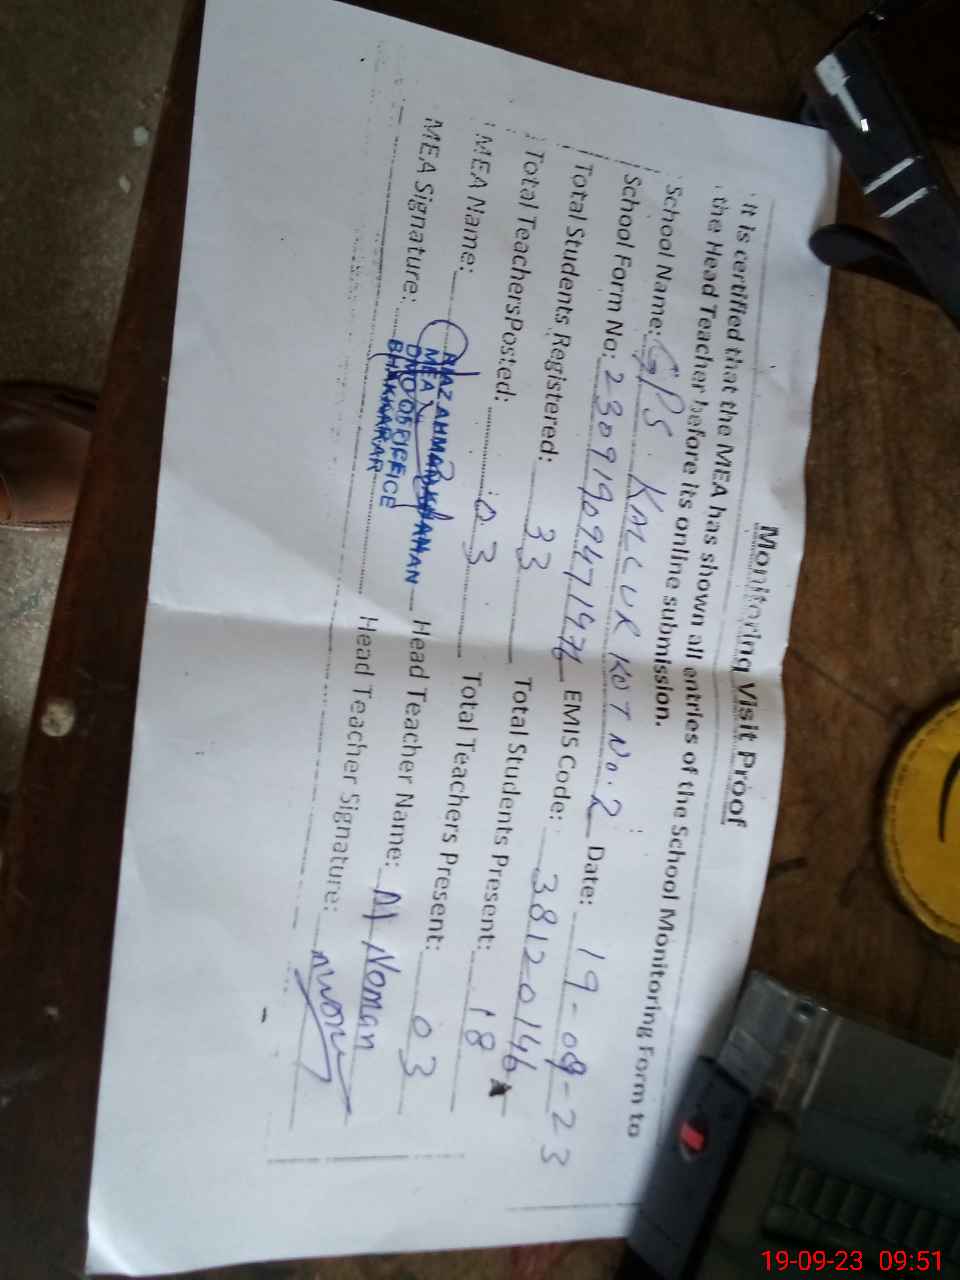 Monitoring Visit Proof
It is certified that the MEA has shown all entries of the School Monitoring Form to
the Head Teacher before its online submission.
School Name: GPS KALLUR KOT No. 2 Date: 19-09-23
School Form No: 23091909471976 EMIS Code: 38120146
Total Students Registered: 33 Total Students Present: 18
Total Teachers Posted: 03 Total Teachers Present: 03
MEA Name: RIAZ AHMAD Head Teacher Name: M Noman
MEA
DMO OFFICE
BHAKKAR
MEA Signature: Head Teacher Signature:
19-09-23 09:51